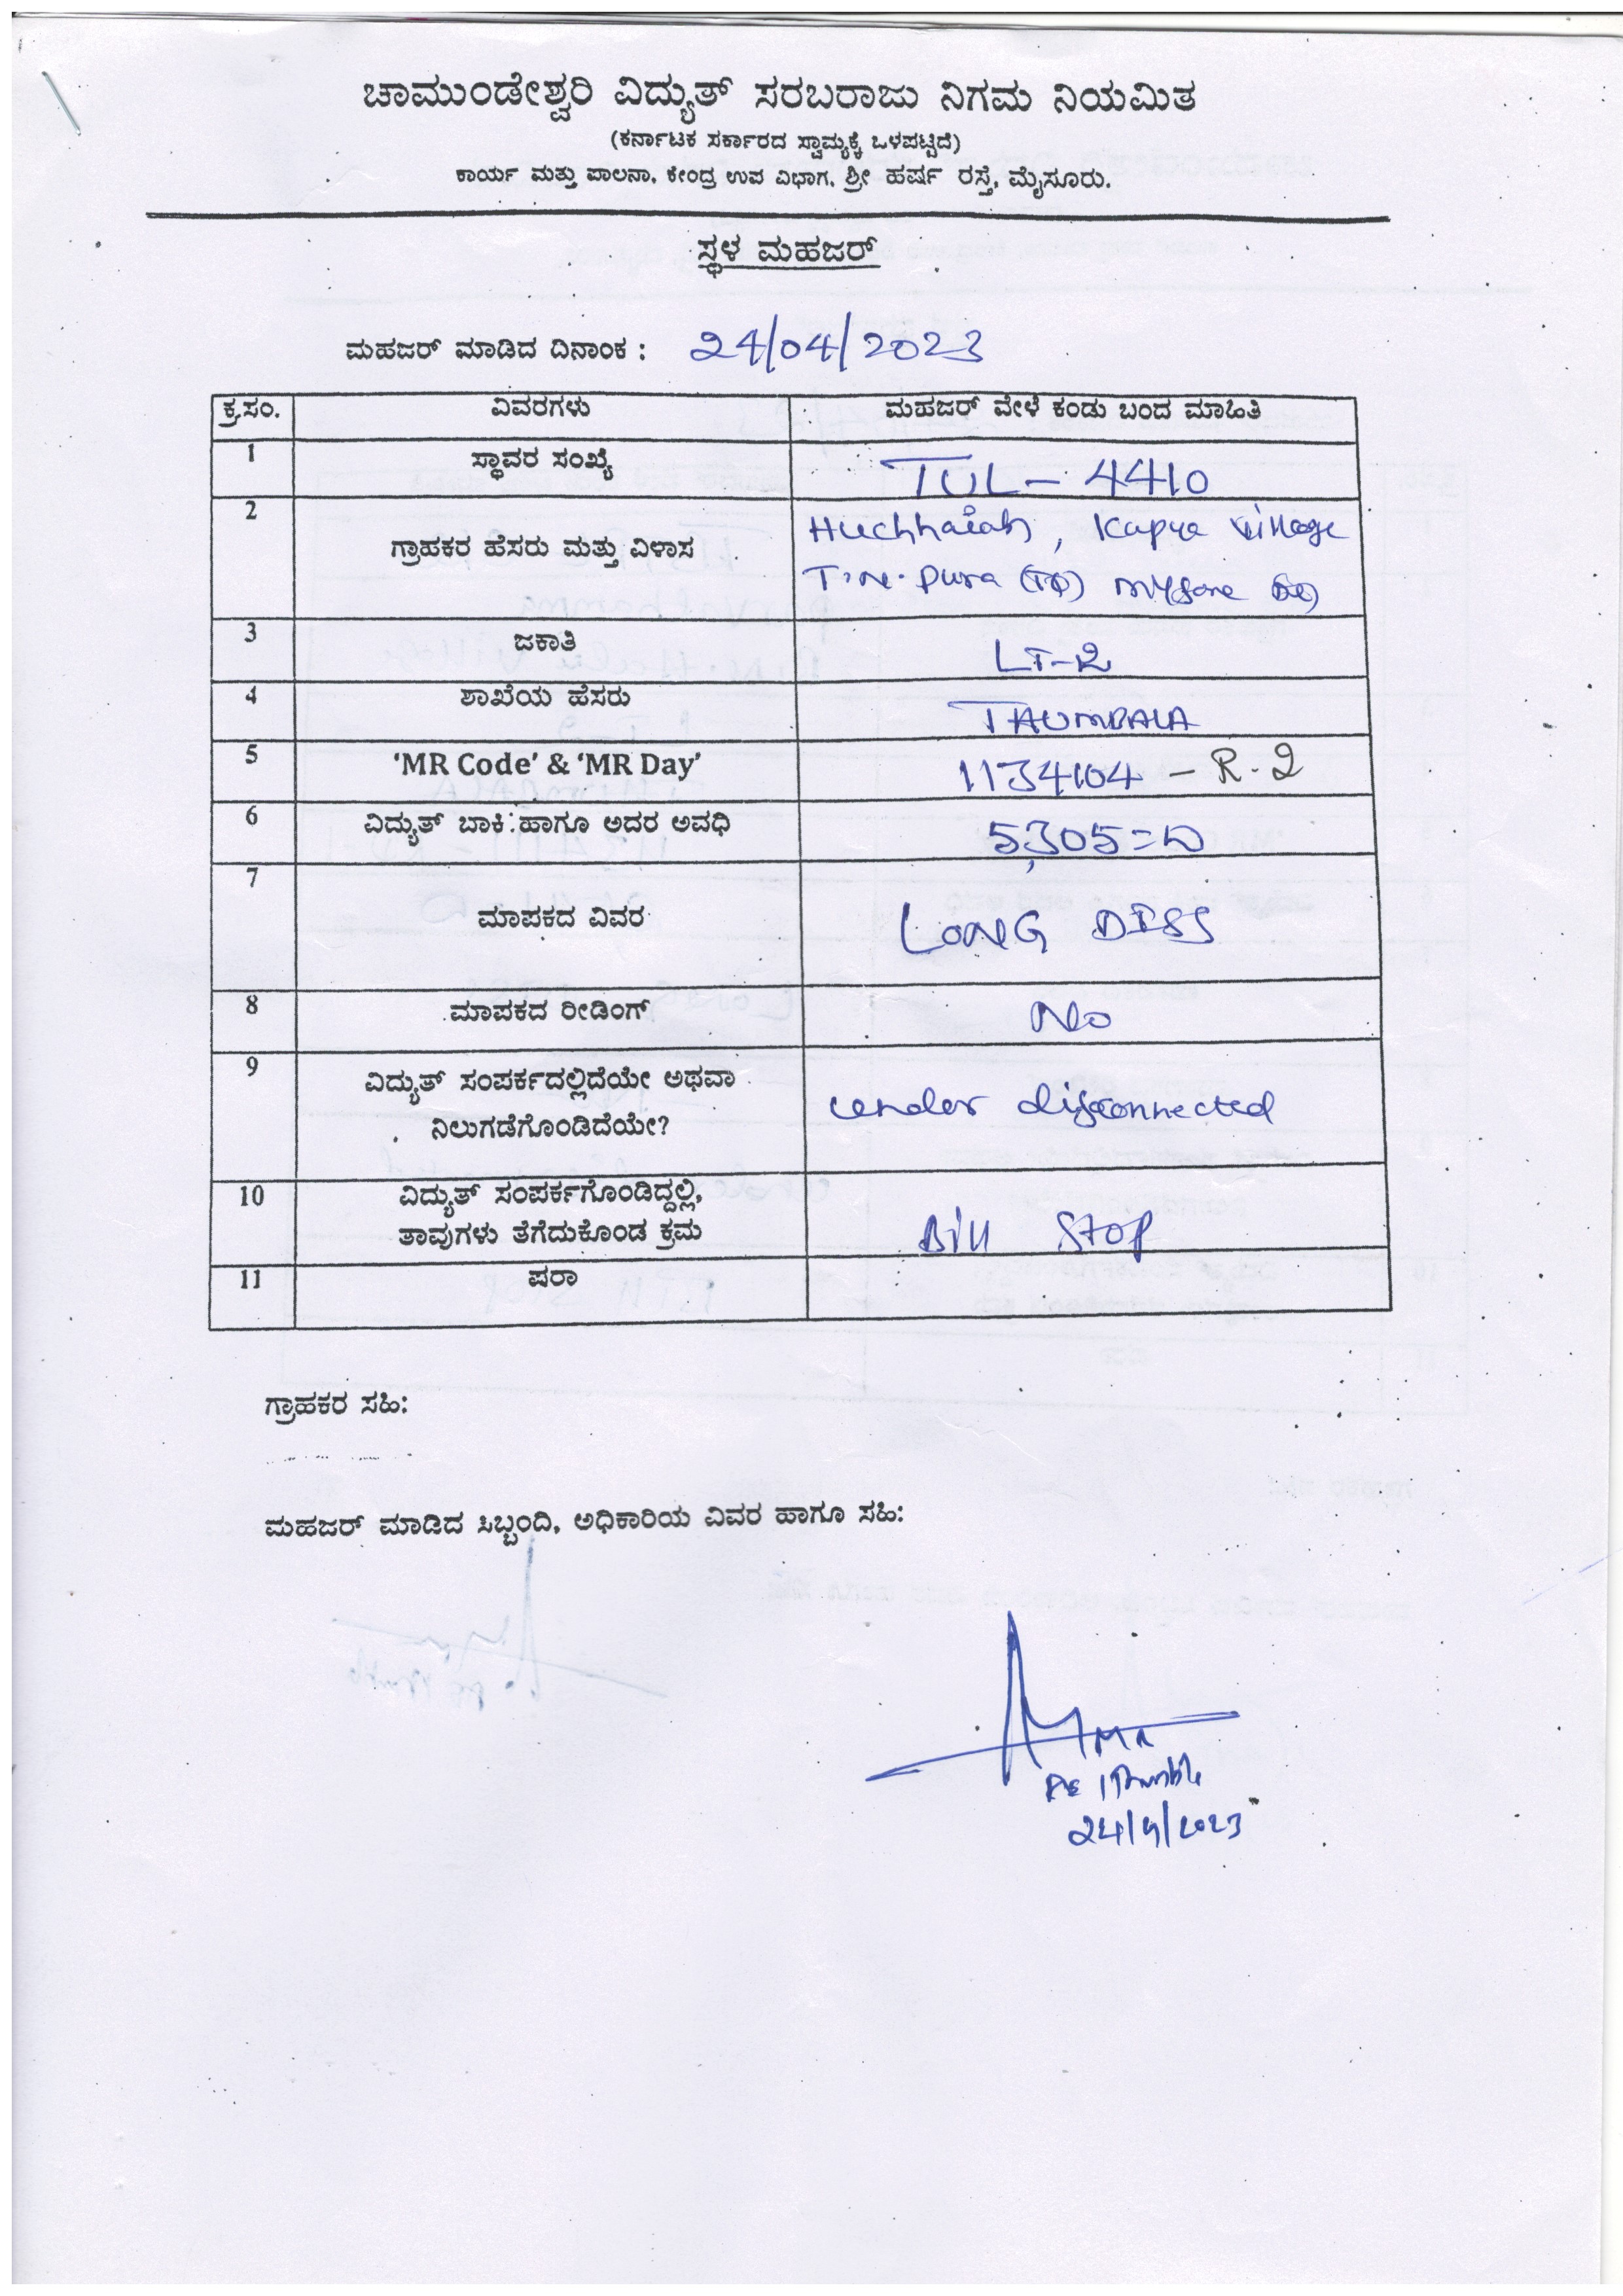 ಚಾಮುಂಡೇಶ್ವರಿ ವಿದ್ಯುತ್ ಸರಬರಾಜು ನಿಗಮ ನಿಯಮಿತ
(ಕರ್ನಾಟಕ ಸರ್ಕಾರದ ಸ್ವಾಮ್ಯಕ್ಕೆ ಒಳಪಟ್ಟಿದೆ)
ಕಾರ್ಯ ಮತ್ತು ಪಾಲನಾ, ಕೇಂದ್ರ ಉಪ ವಿಭಾಗ, ಶ್ರೀ ಹರ್ಷ ರಸ್ತೆ, ಮೈಸೂರು.
ಸ್ಥಳ ಮಹಜರ್
ಮಹಜರ್ ಮಾಡಿದ ದಿನಾಂಕ : 24/04/2023
ಕ್ರ.ಸಂ. ವಿವರಗಳು ಮಹಜರ್ ವೇಳೆ ಕಂಡು ಬಂದ ಮಾಹಿತಿ
1 ಸ್ಥಾವರ ಸಂಖ್ಯೆ TUL - 4410
2 ಗ್ರಾಹಕರ ಹೆಸರು ಮತ್ತು ವಿಳಾಸ Huchhaiah, Kupya village
T.N. pura (TQ) mysore
3 ಜಕಾತಿ LT-2
4 ಶಾಖೆಯ ಹೆಸರು
5 'MR Code' & 'MR Day' 1134104 - R-2
6 ವಿದ್ಯುತ್ ಬಾಕಿ ಹಾಗೂ ಅದರ ಅವಧಿ 5,305=00
7 ಮಾಪಕದ ವಿವರ LONG DISS
8 ಮಾಪಕದ ರೀಡಿಂಗ್ No
9 ವಿದ್ಯುತ್ ಸಂಪರ್ಕದಲ್ಲಿದೆಯೇ ಅಥವಾ
ನಿಲುಗಡೆಗೊಂಡಿದೆಯೇ? under disconnected
10 ವಿದ್ಯುತ್ ಸಂಪರ್ಕಗೊಂಡಿದ್ದಲ್ಲಿ,
ತಾವುಗಳು ತೆಗೆದುಕೊಂಡ ಕ್ರಮ Bill Stop
11 ಷರಾ
ಗ್ರಾಹಕರ ಸಹಿ:
ಮಹಜರ್ ಮಾಡಿದ ಸಿಬ್ಬಂದಿ, ಅಧಿಕಾರಿಯ ವಿವರ ಹಾಗೂ ಸಹಿ:
24/4/2023